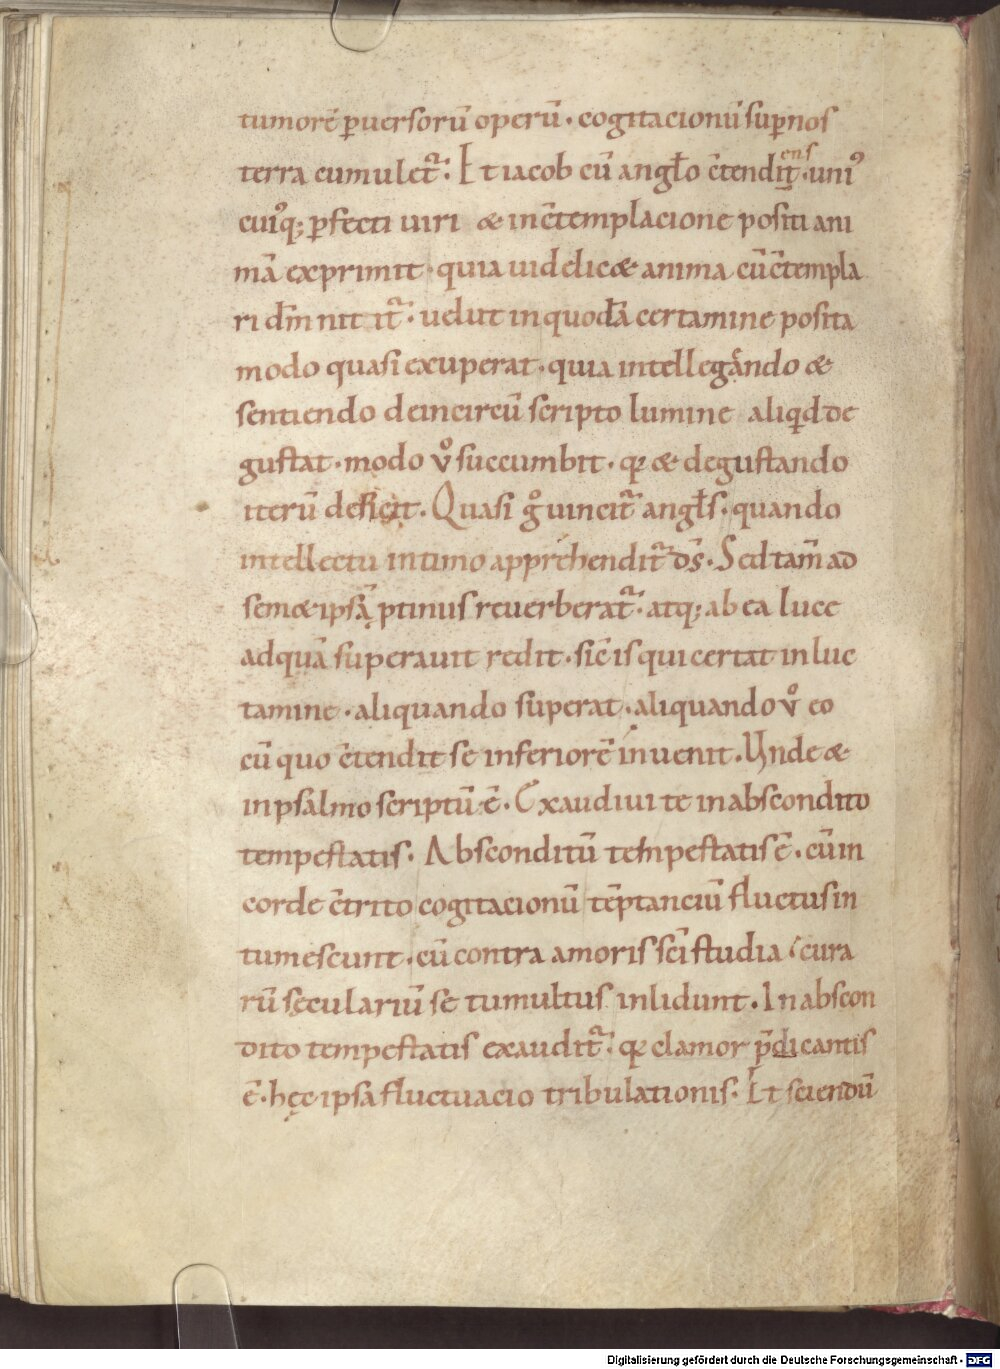 tumorē ꝑuersorū operū · cogitacionū suꝑ nos
terra cumulet᷑ · Et iacob cū angło c̄tendit ens · uniꝰ
cuiꝰq; ꝑfecti uiri & in c̄templacione positi ani
mā exprimit · quia uidelic& anima cū c̄templa
ri dm̄ nitit᷑ · uelut in quodā certamine posita
modo quasi exuperat · quia intellegendo &
sentiendo de incircū scripto lumine aliqd de
gustat · modo vͦ succumbit · qꝛ & degustando
iterū deficit · Quasi gͦ uincit᷑ angłs · quando
intellectu intimo apprehendit᷑ ds̄ · Sed tam̄ ad
sem&ipsā ptinus reuerberat᷑ · atq; ab ea luce
ad quā superauit redit · sic̄ is qui certat in luc
tamine · aliquando superat · aliquando vͦ eo
cū quo c̄tendit se inferiorē inuenit · Unde &
in psalmo scriptū ē · Exaudiui te in abscondito
tempestatis · Absconditū tempestatis ē · cū in
corde c̄trito cogitacionū tēptanciū fluctus in
tumescunt · cū contra amoris sc̄i studia · cura
rū sęculariū se tumultus inlidunt · In abscon
dito tempestatis exaudit᷑ · qꝛ clamor p̄dicantis
ē · hęc ipsa fluctuacio tribulationis · Et sciendū
Digitalisierung gefördert durch die Deutsche Forschungsgemeinschaft - DFG